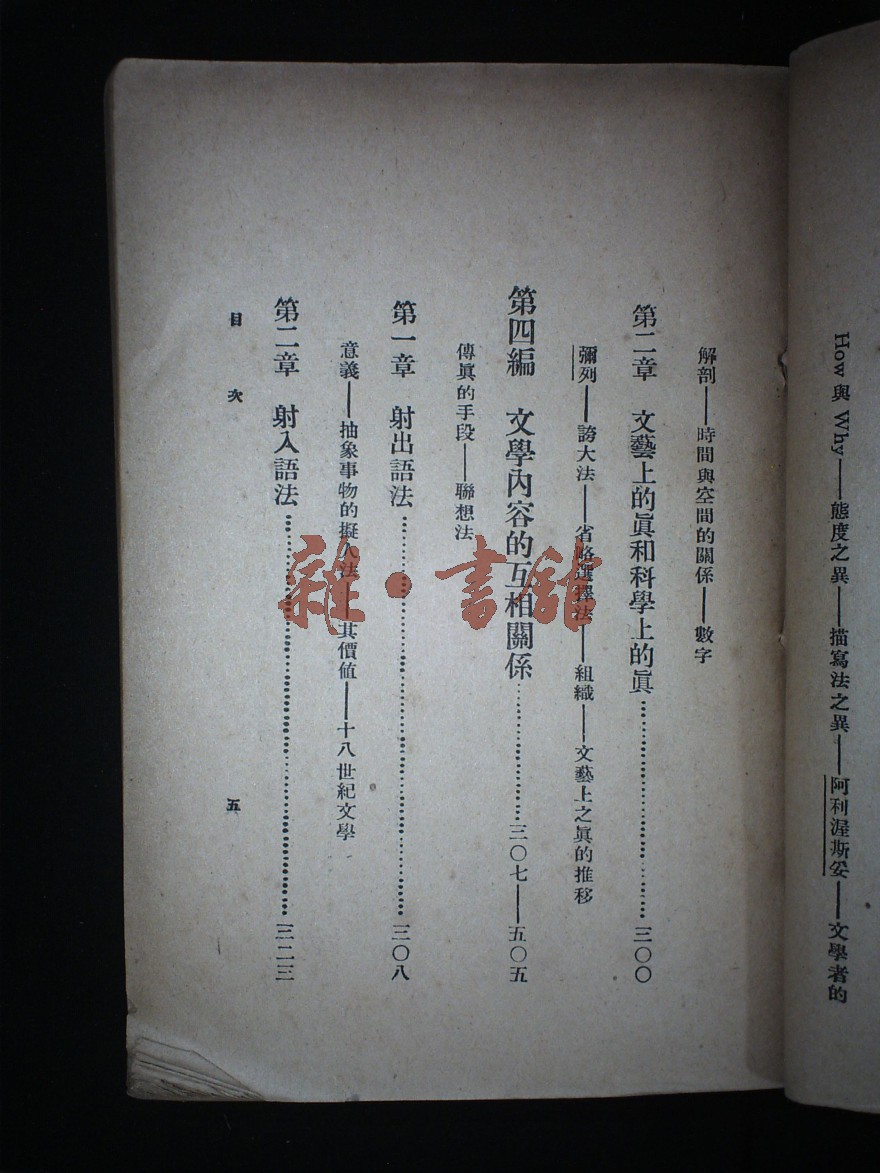 How 與 Why——態度之異——描寫法之異——阿利渥斯妥——文學者的
解剖——時間與空間的關係——數字
第二章　文藝上的眞和科學上的眞……三〇〇
彌列——誇大法——省略選擇法——組織——文藝上之眞的推移
第四編　文學內容的互相關係……三〇七——五〇五
傳眞的手段——聯想法
第一章　射出語法……三〇八
意義——抽象事物的擬人法——其價値——十八世紀文學
第二章　射入語法……三二三
目次　五
雜·書館